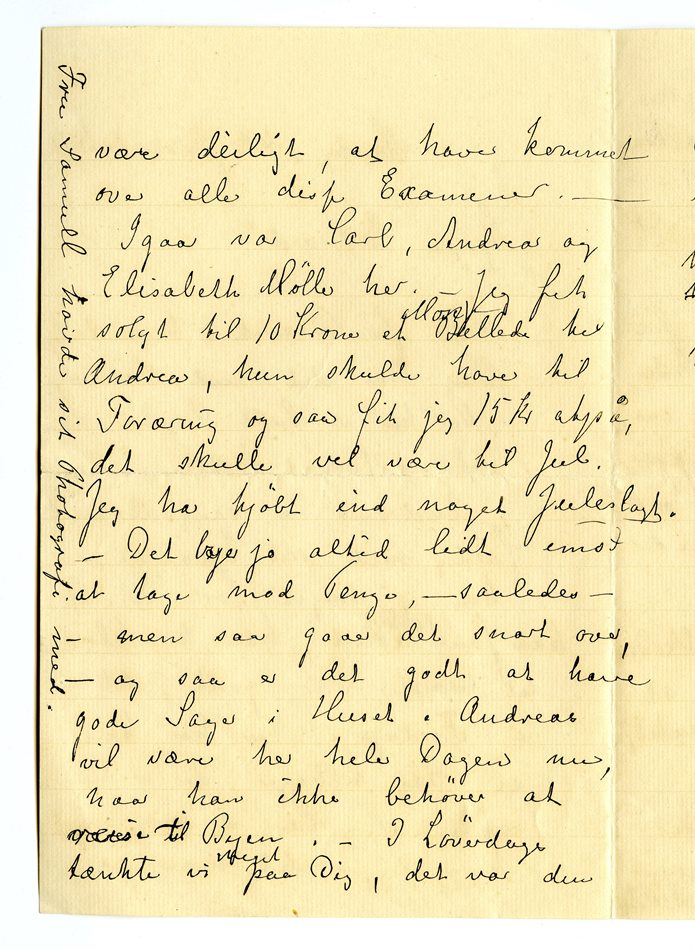 være deiligt, at have kommet
over alle disse Examener. —
Igaar var Carl, Andrea og
Elisabeth Mølle her. — Jeg fik
solgt til 10 Krone et Billede til
Andrea, hun skulde have til
Foræring og saa fik jeg 15 Kr
det skulle vel være til Jul.
Jeg har kjöbt ind noget Juleslagt.
— Det byer jo altid lidt imod
at tage mod Penge, — saaledes —
— men saa gaar det snart over,
— og saa er det godt at have
gode Sager i Huset. Andreas
vil være her hele Dagen nu,
naar han ikke behöver at
til Byen. — I Löverdags
tænkte vi meget paa Dig, det var den
Fru Samuell havde sit Photografi med.